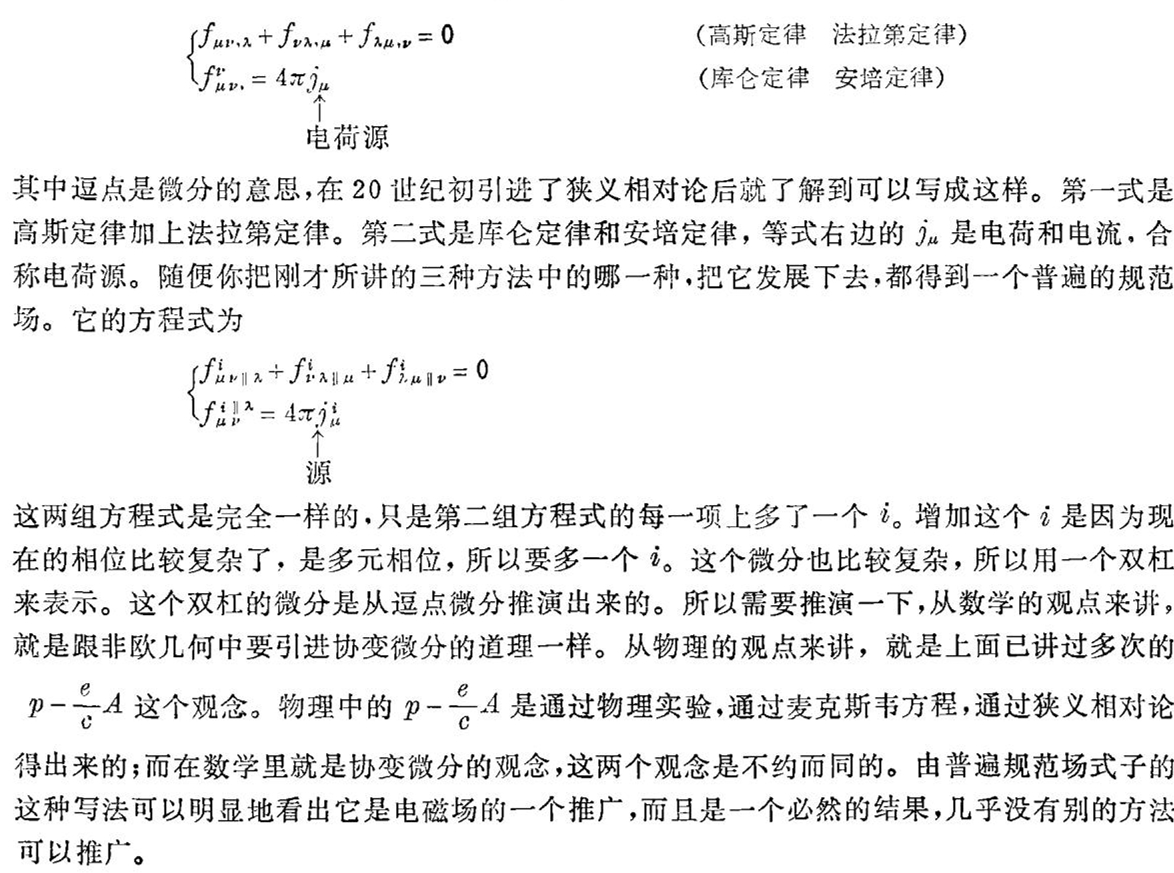 f_{μν,λ} + f_{νλ,μ} + f_{λμ,ν} = 0 (高斯定律 法拉第定律)
f_{μν,}^{ν} = 4πj_μ (库仑定律 安培定律)
↑
电荷源
其中逗点是微分的意思,在 20 世纪初引进了狭义相对论后就了解到可以写成这样。第一式是
高斯定律加上法拉第定律。第二式是库仑定律和安培定律,等式右边的 j_μ 是电荷和电流,合
称电荷源。随便你把刚才所讲的三种方法中的哪一种,把它发展下去,都得到一个普遍的规范
场。它的方程式为
f^i_{μν∥λ} + f^i_{νλ∥μ} + f^i_{λμ∥ν} = 0
f^{i∥λ}_{μν} = 4πj^i_μ
↑
源
这两组方程式是完全一样的,只是第二组方程式的每一项上多了一个 i。增加这个 i 是因为现
在的相位比较复杂了,是多元相位,所以要多一个 i。这个微分也比较复杂,所以用一个双杠
来表示。这个双杠的微分是从逗点微分推演出来的。所以需要推演一下,从数学的观点来讲,
就是跟非欧几何中要引进协变微分的道理一样。从物理的观点来讲,就是上面已讲过多次的
p-\frac{e}{c}A 这个观念。物理中的 p-\frac{e}{c}A 是通过物理实验,通过麦克斯韦方程,通过狭义相对论
得出来的;而在数学里就是协变微分的观念,这两个观念是不约而同的。由普遍规范场式子的
这种写法可以明显地看出它是电磁场的一个推广,而且是一个必然的结果,几乎没有别的方法
可以推广。